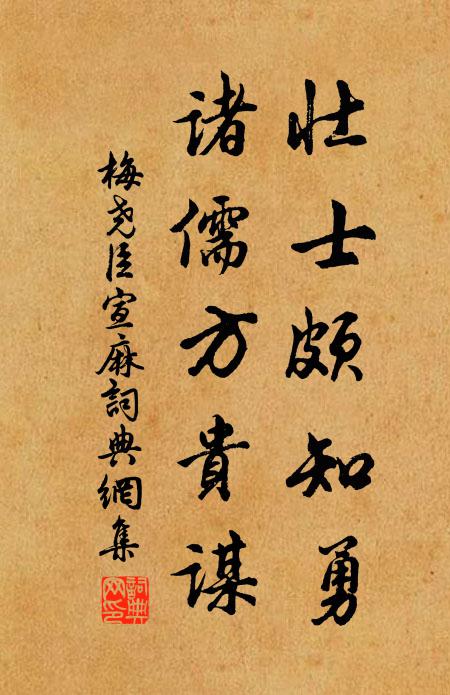 壮士頗知勇
诸儒方貴谋
梅尧臣宣麻詞典網集
詞典网印